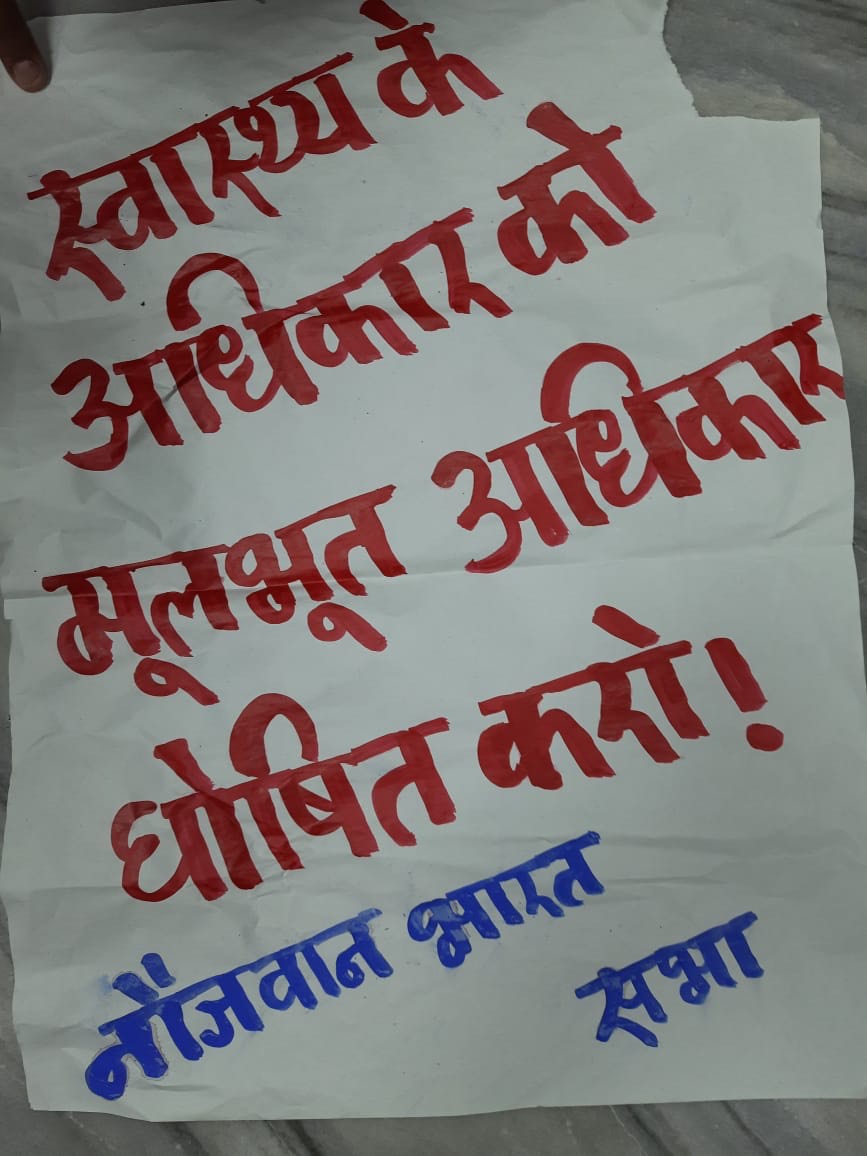 स्वास्थ्य के
अधिकार को
मूलभूत अधिकार
घोषित करो!
नौजवान भारत
सभा